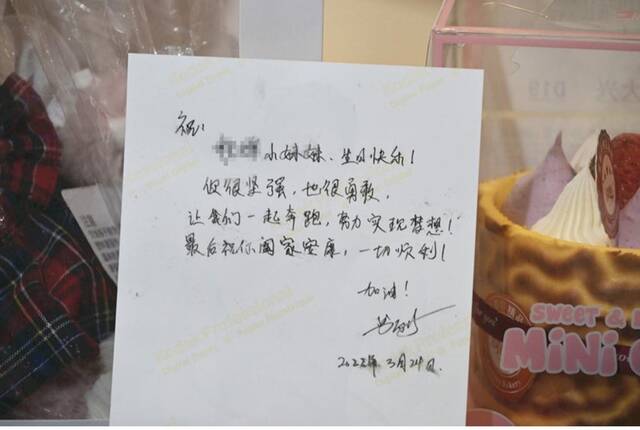 祝:
小妹妹、生日快乐!
你很坚强,也很勇敢,
让我们一起奔跑,努力实现梦想!
最后祝你阖家安康,一切顺利!
加油!
2022年3月24日.
SWEET &
MiNi